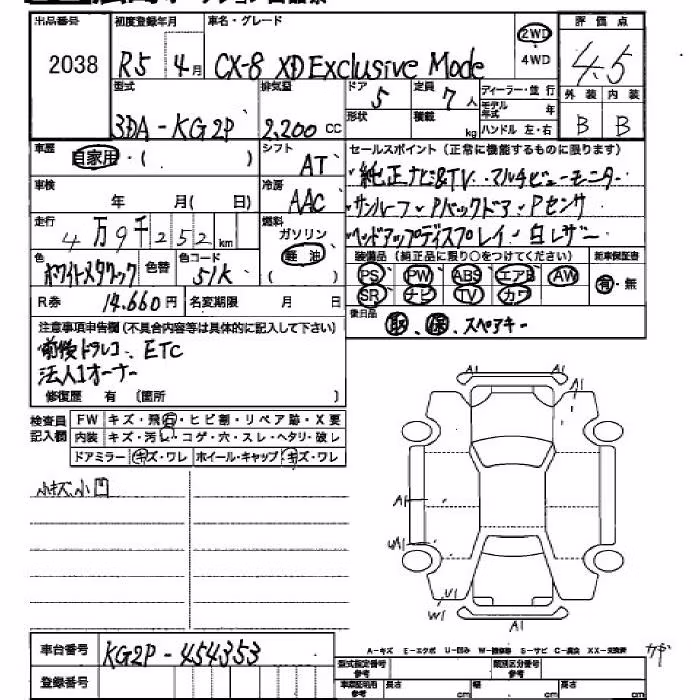 出品番号 初度登録年月 車名・グレード 評価点
2038 R5 4月 CX-8 XD Exclusive Mode 2WD 4WD 4.5
型式 排気量 ドア 定員 ディーラー・並行 外装 内装
3DA-KG2P 2,200cc 5 7人 モデル年式 年 B B
形状 積載 kg ハンドル 左・右
車歴 自家用・( ) シフト AT セールスポイント(正常に機能するものに限ります)
純正ナビ&TV マルチビューモニター
車検 年 月( 日) 冷房 AAC サンルーフ Pバックドア Pセンサ
走行 4万9千252km 燃料 ガソリン 軽油 ( ) ヘッドアップディスプレイ 白レザー
色 ホワイトメタリック 色替 色コード 51K 装備品(純正品に限り○をつけてください) 新車保証書
PS PW ABS エアB AW 有・無
SR ナビ TV カワ
R券 14.660円 名変期限 月 日 後日品 取、保、スペアキー
注意事項申告欄(不具合内容等は具体的に記入して下さい)
前後ドラレコ、ETC
法人1オーナー
修復歴 有 〔箇所 〕
検査員記入欄 FW キズ・飛石・ヒビ割・リペア跡・X要
内装 キズ・汚レ・コゲ・穴・スレ・ヘタリ・破レ
ドアミラー キズ・ワレ ホイール・キャップ キズ・ワレ
小キズ小凹
A1 A1
A1
A1
W1
U1
W1
A1
車台番号 KG2P-454353
A-キズ E-エクボ U-凹み W-補修跡 S-サビ C-腐食 XX-交換済
登録番号 型式指定番号 類別区分番号
参考 長さ cm 幅 cm 高さ cm